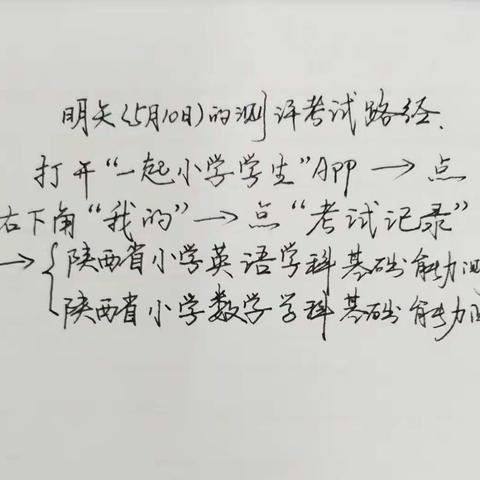 明天(5月10日)的测评考试路经.
打开“一起小学学生”APP → 点
右下角“我的” → 点“考试记录”
→ { 陕西省小学英语学科基础能力测
陕西省小学数学学科基础能力测